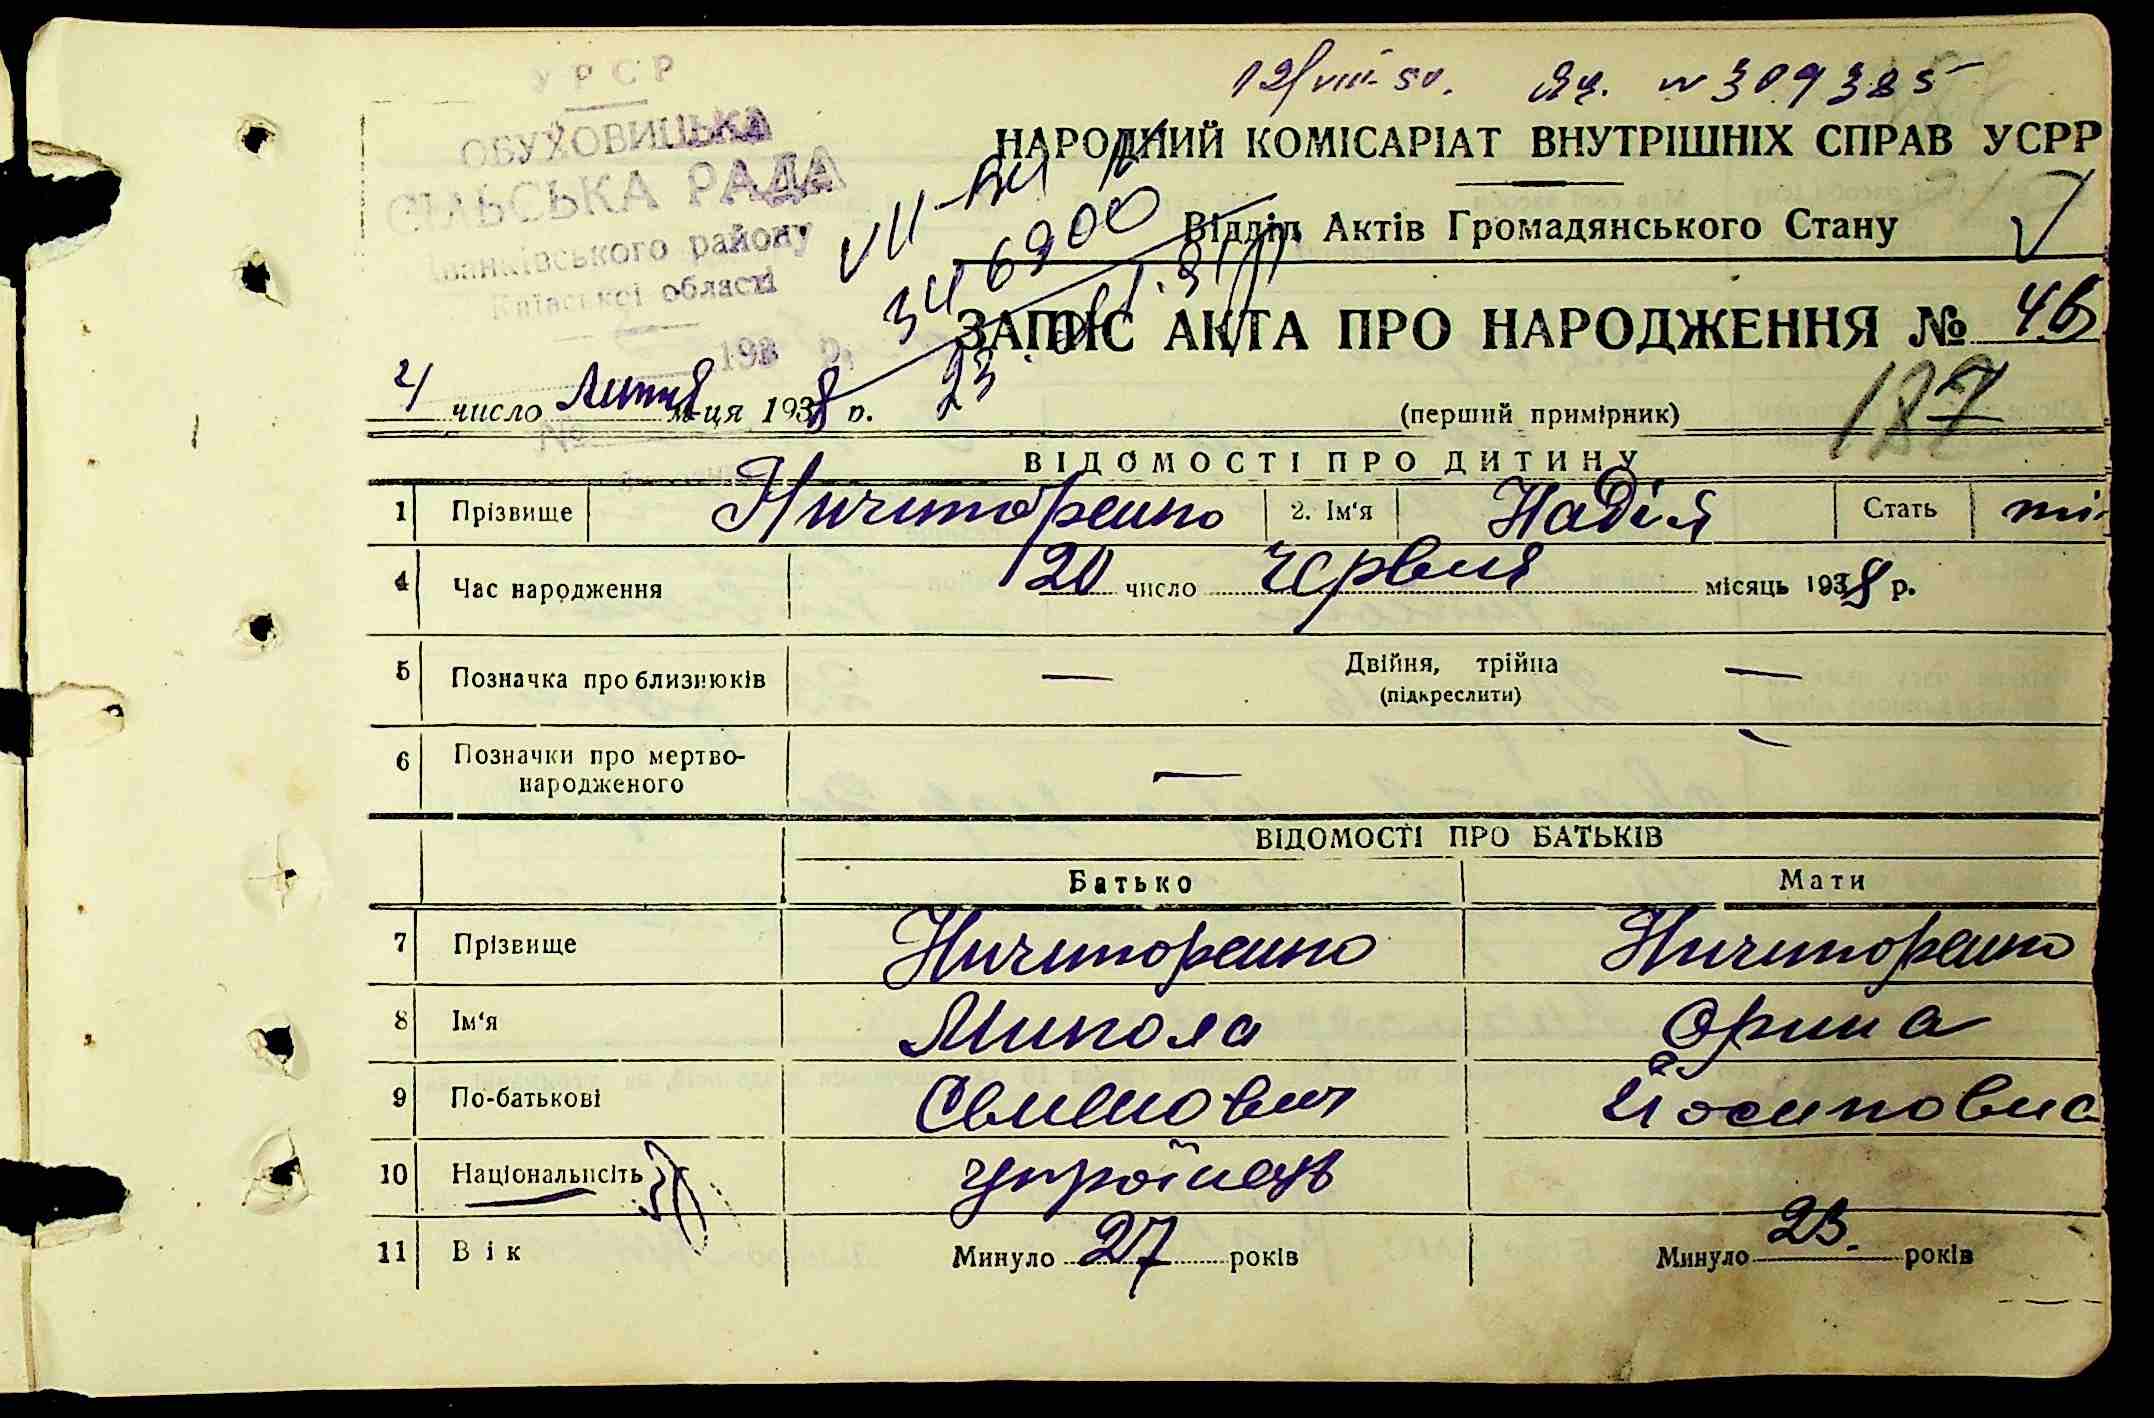 У Р С Р
ОБУХОВИЦЬКА
СІЛЬСЬКА РАДА
Іванківського району
Київської області
193 р.
№
12/VIII-50. № 309385
НАРОДНИЙ КОМІСАРІАТ ВНУТРІШНІХ СПРАВ УСРР
Відділ Актів Громадянського Стану
346900
ЗАПИС АКТА ПРО НАРОДЖЕННЯ № 46
4 число Липня м-ця 1938 р.
23
(перший примірник)
187
ВІДОМОСТІ ПРО ДИТИНУ
1 Прізвище Ничипоренко 2. Ім'я Надія Стать
4 Час народження 20 число червня місяць 1938 р.
5 Позначка про близнюків — Двійня, трійня —
(підкреслити)
6 Позначки про мертво-
народженого —
ВІДОМОСТІ ПРО БАТЬКІВ
Батько Мати
7 Прізвище Ничипоренко Ничипоренко
8 Ім'я Микола Орина
9 По-батькові Семенович Йосиповна
10 Національсіть українець
11 Вік Минуло 27 років Минуло 23. років